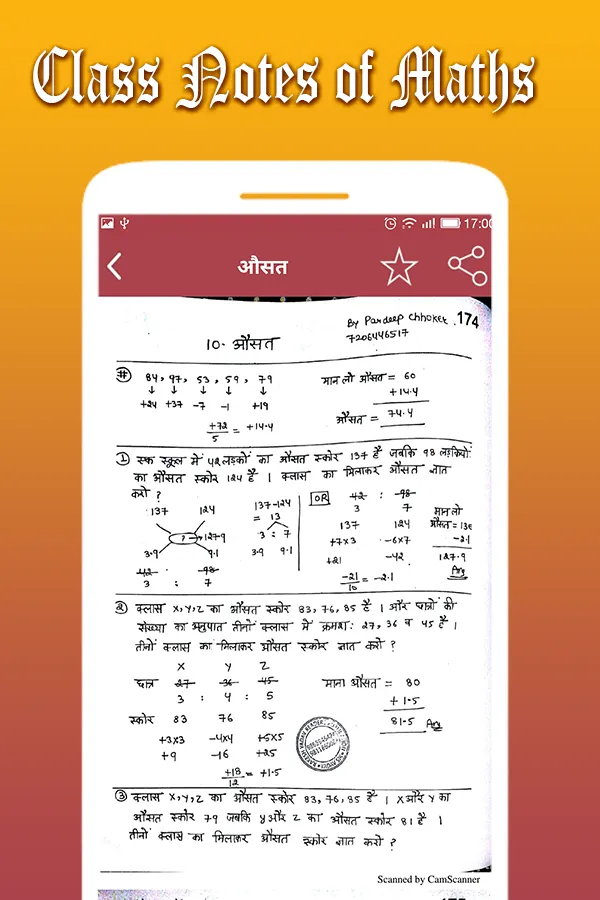 Class Notes of Maths
17:00
औसत
By Pardeep Chhoker 174
7206446517
10. औसत
# 84, 97, 53, 59, 79
↓ ↓ ↓ ↓ ↓
+24 +37 -7 -1 +19
+72/5 = +14.4
मान लो औसत = 60
+14.4
औसत = 74.4
① एक स्कूल में 42 लड़कों का औसत स्कोर 137 है जबकि 98 लड़कियों
का औसत स्कोर 124 है । क्लास का मिलाकर औसत ज्ञात
करो ?
137 124
? → 127.9
3.9 9.1
42 98
3 : 7
137-124
= 13
3 : 7
3.9 9.1
OR 42 : 98
3 7
137 124
+7×3 -6×7
+21 -42
-21/10 = -2.1
मान लो
औसत = 130
-2.1
127.9
Ans
② क्लास X,Y,Z का औसत स्कोर 83, 76, 85 है । और छात्रों की
संख्या का अनुपात तीनों क्लास में क्रमशः 27, 36 व 45 है ।
तीनों क्लास का मिलाकर औसत स्कोर ज्ञात करो ?
X Y Z
छात्र 27 36 45
3 : 4 : 5
स्कोर 83 76 85
+3×3 -4×4 +5×5
+9 -16 +25
+18/12 = +1.5
माना औसत = 80
+ 1.5
81.5 Ans
③ क्लास X, Y, Z का औसत स्कोर 83, 76, 85 है । X और Y का
औसत स्कोर 79 जबकि Y और Z का औसत स्कोर 81 है ।
तीनों क्लास का मिलाकर औसत स्कोर ज्ञात करो ?
Scanned by CamScanner